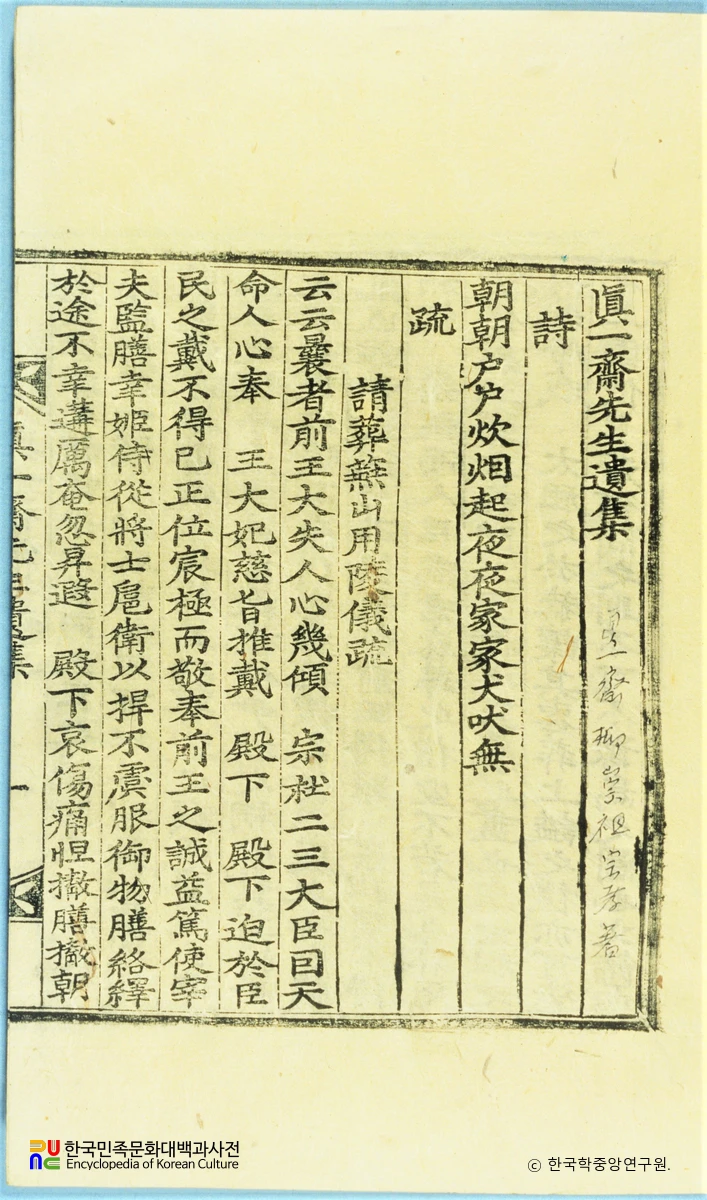 眞一齋先生遺集
眞一齋 柳崇祖 宗孝著
詩
朝朝戶戶炊烟起夜夜家家犬吠無
疏
請葬蕪山用陵儀疏
云云曩者前王大失人心幾傾 宗社二三大臣回天
命人心奉 王大妃慈旨推戴 殿下 殿下迫於臣
民之戴不得已正位宸極而敬奉前王之誠益篤使宰
夫監膳幸姬侍從將士扈衛以捍不虞服御物膳絡繹
於途不幸遘厲奄忽昇遐 殿下哀傷痛怛撤膳撤朝
眞一齋先生遺集 一
한국민족문화대백과사전
Encyclopedia of Korean Culture
ⓒ 한국학중앙연구원.